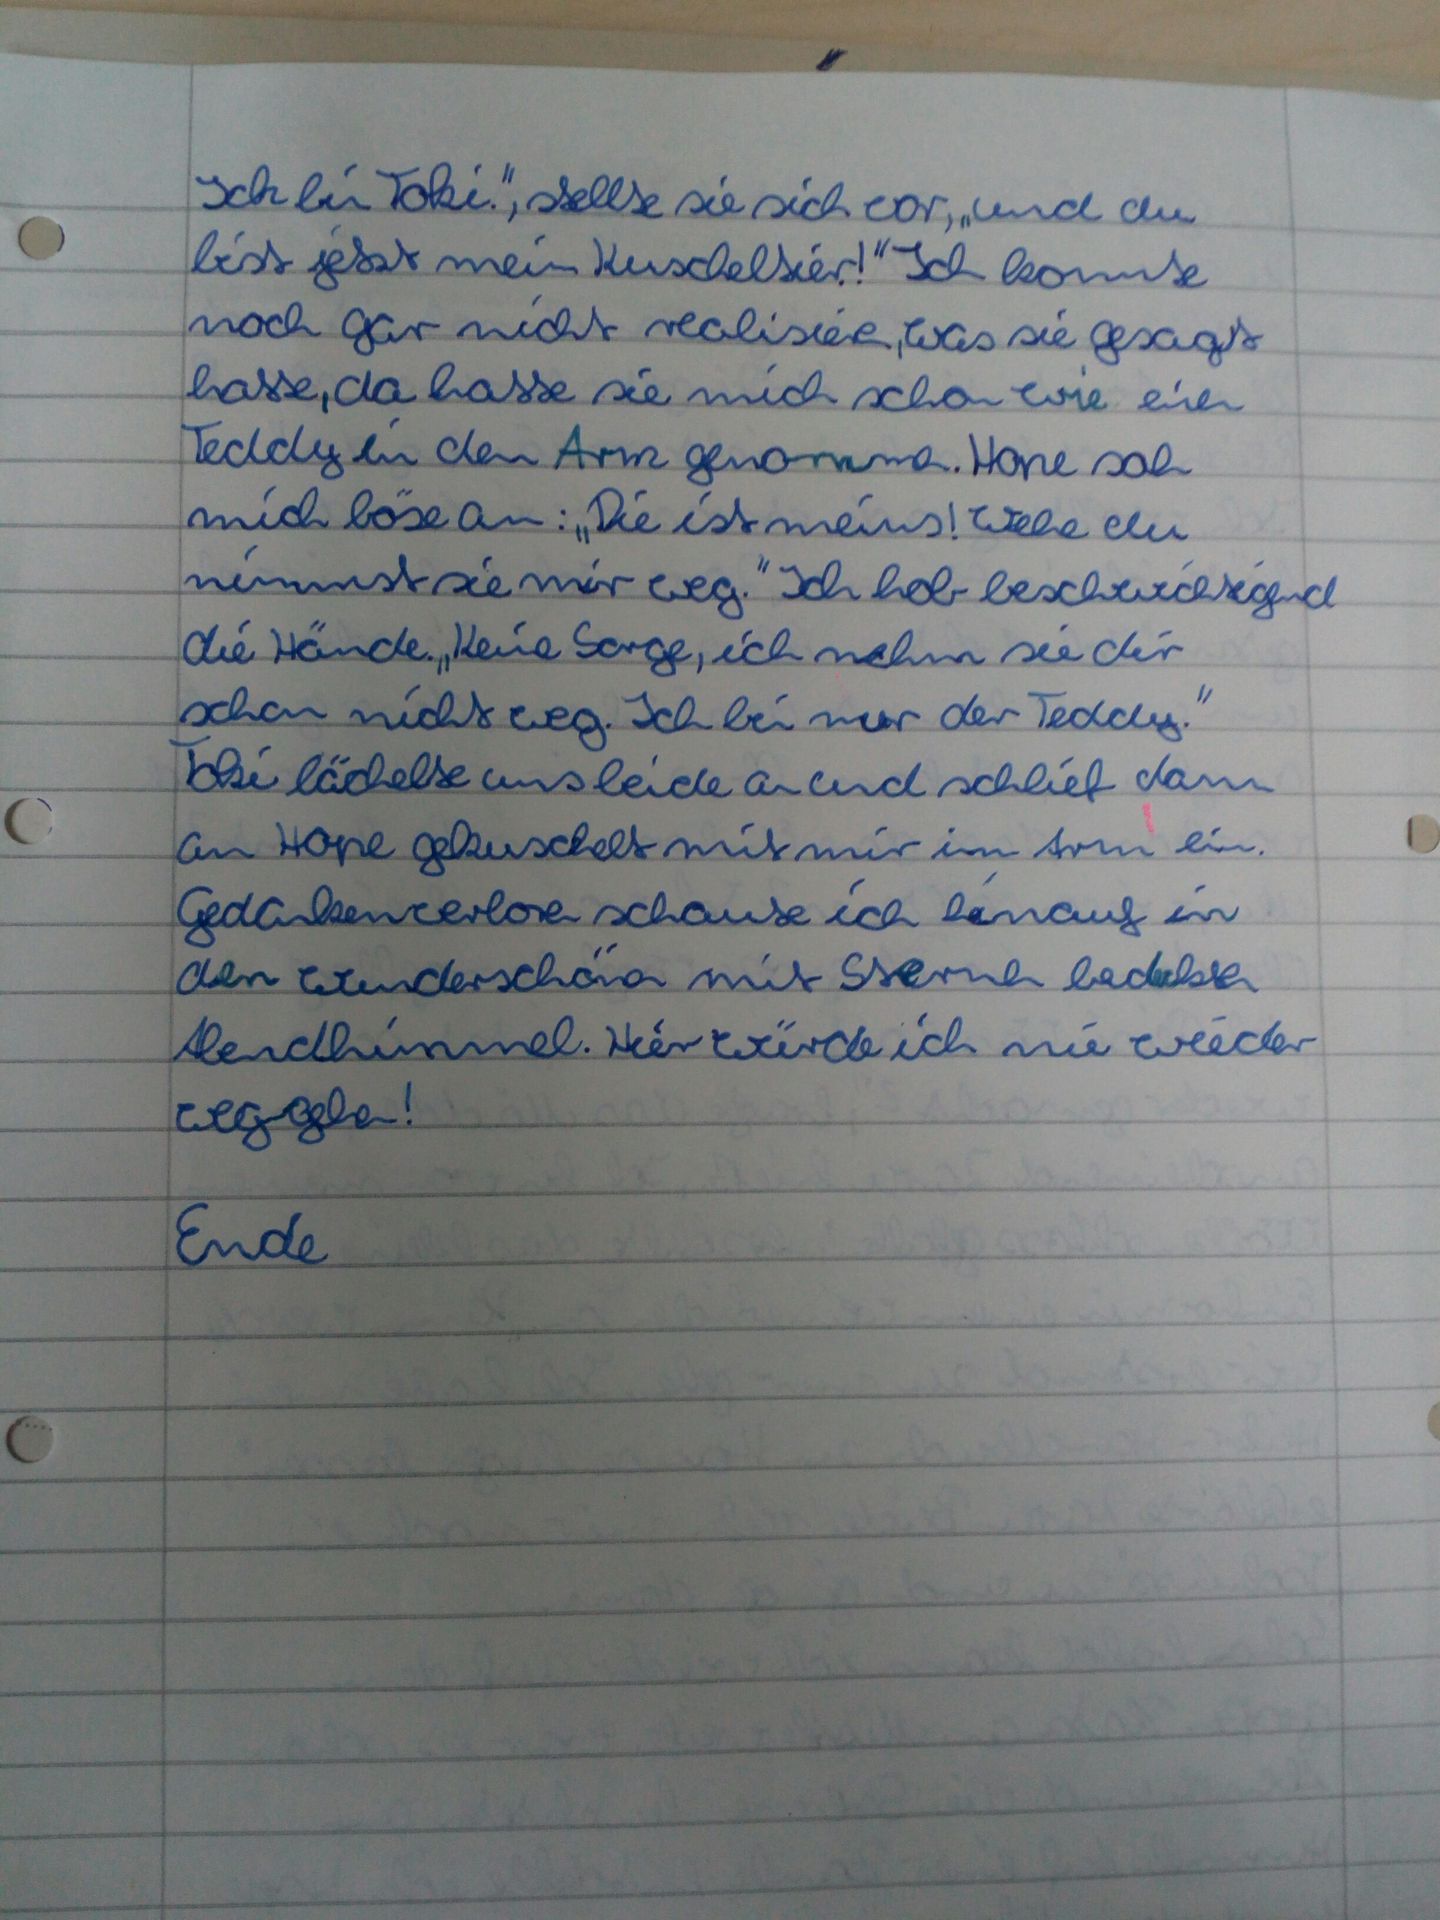 Ich bin Toki.", stellte sie sich vor, „und du
bist jetzt mein Kuscheltier!" Ich konnte
noch gar nicht realisieren, was sie gesagt
hatte, da hatte sie mich schon wie einen
Teddy in den Arm genommen. Hope sah
mich böse an: „Die ist meins! Wehe du
nimmst sie mir weg." Ich hob beschwichtigend
die Hände. „Keine Sorge, ich nehm sie dir
schon nicht weg. Ich bin nur der Teddy."
Toki lächelte uns beide an und schlief dann
an Hope gekuschelt mit mir im Arm ein.
Gedankenverloren schaute ich hinauf in
den wunderschönen mit Sternen bedeckten
Abendhimmel. Hier würde ich nie wieder
weggehen!
Ende